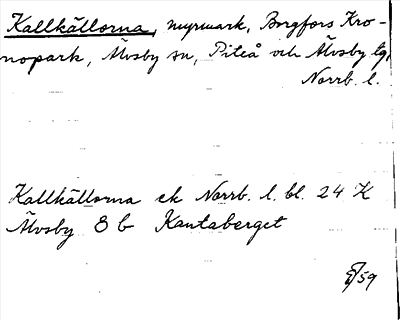 Kallkällorna, myrmark, Borgfors Kro-
nopark, Älvsby sn, Piteå och Älvsby tg,
Norrb. l.
Kallkällorna ek Norrb. l. bl. 24 K
Älvsby 8 b Kantaberget
/59